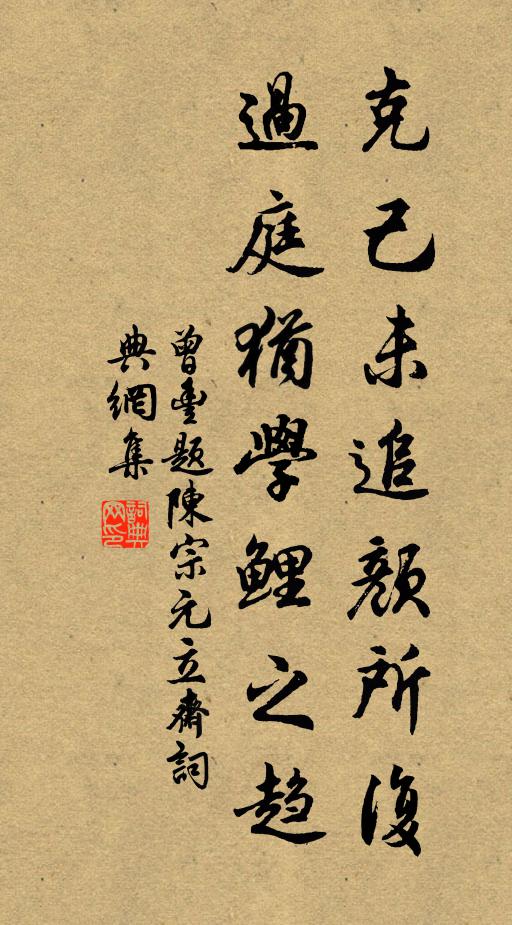 克己未追顏所復
過庭猶學鯉之趨
曾豐題陳宗元立齋詞
典網集
詞典網印